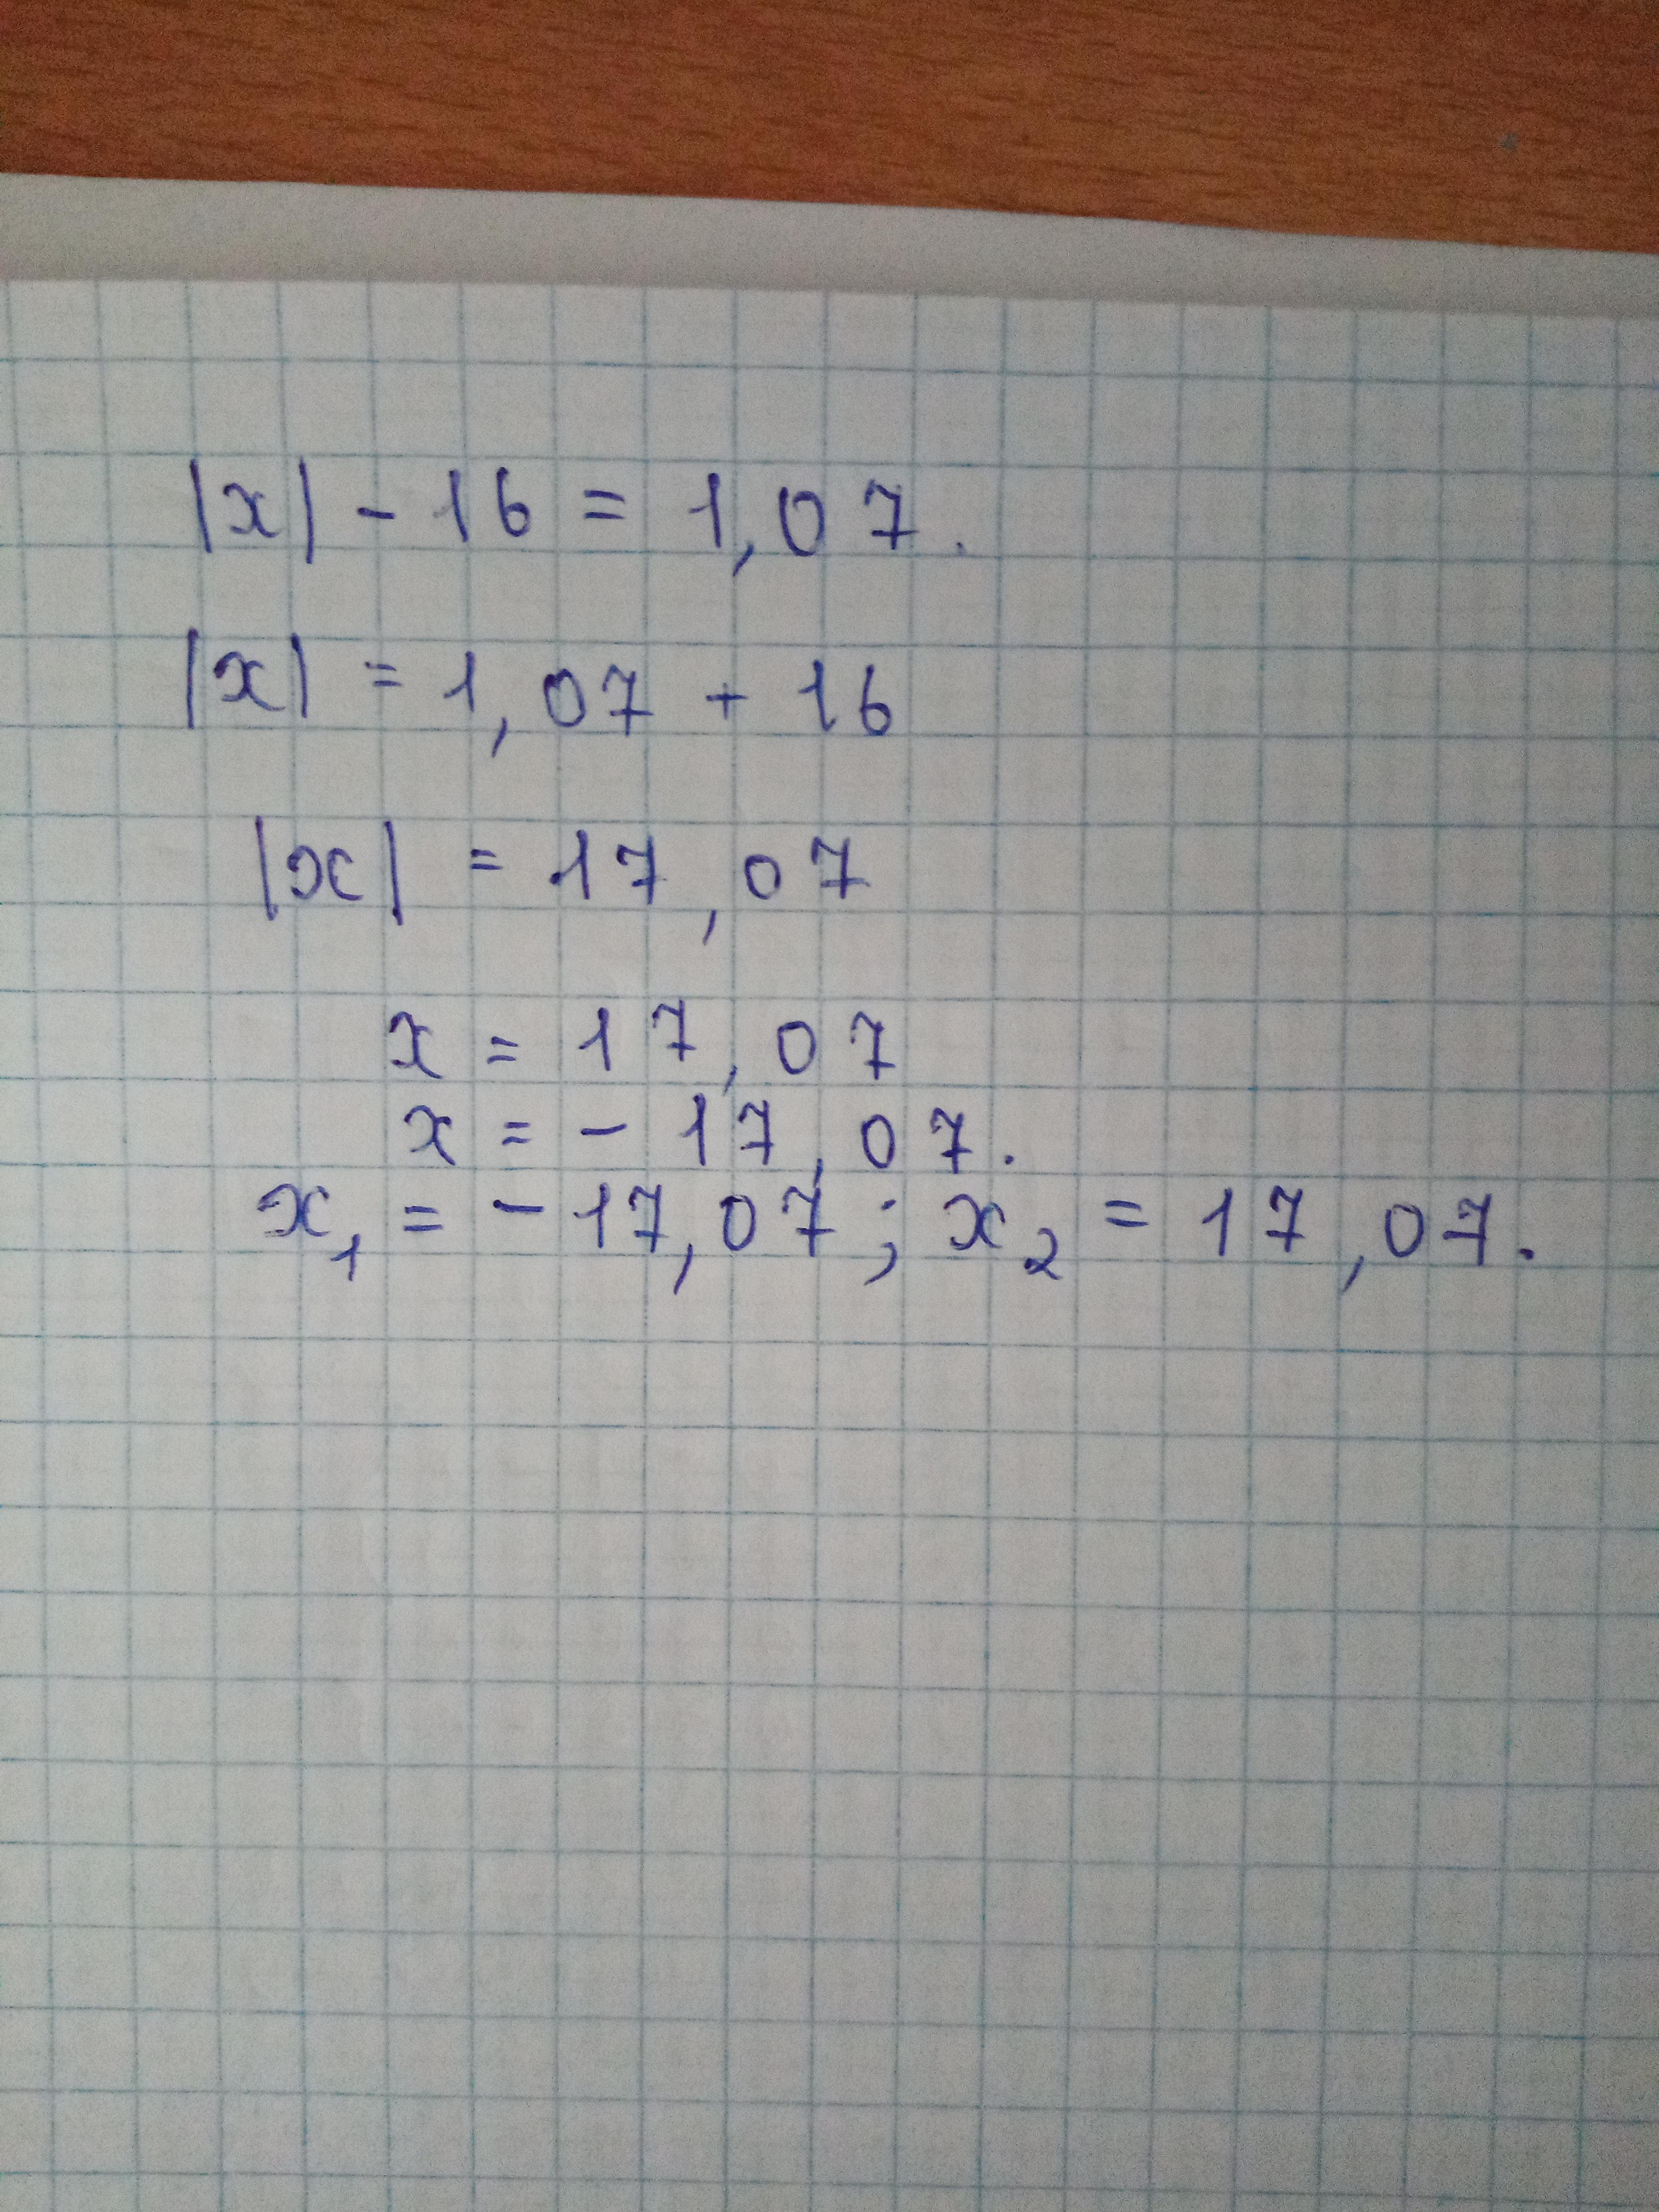 |x| - 16 = 1,07.
|x| = 1,07 + 16
|x| = 17,07
x = 17,07
x = - 17,07.
x₁ = - 17,07; x₂ = 17,07.